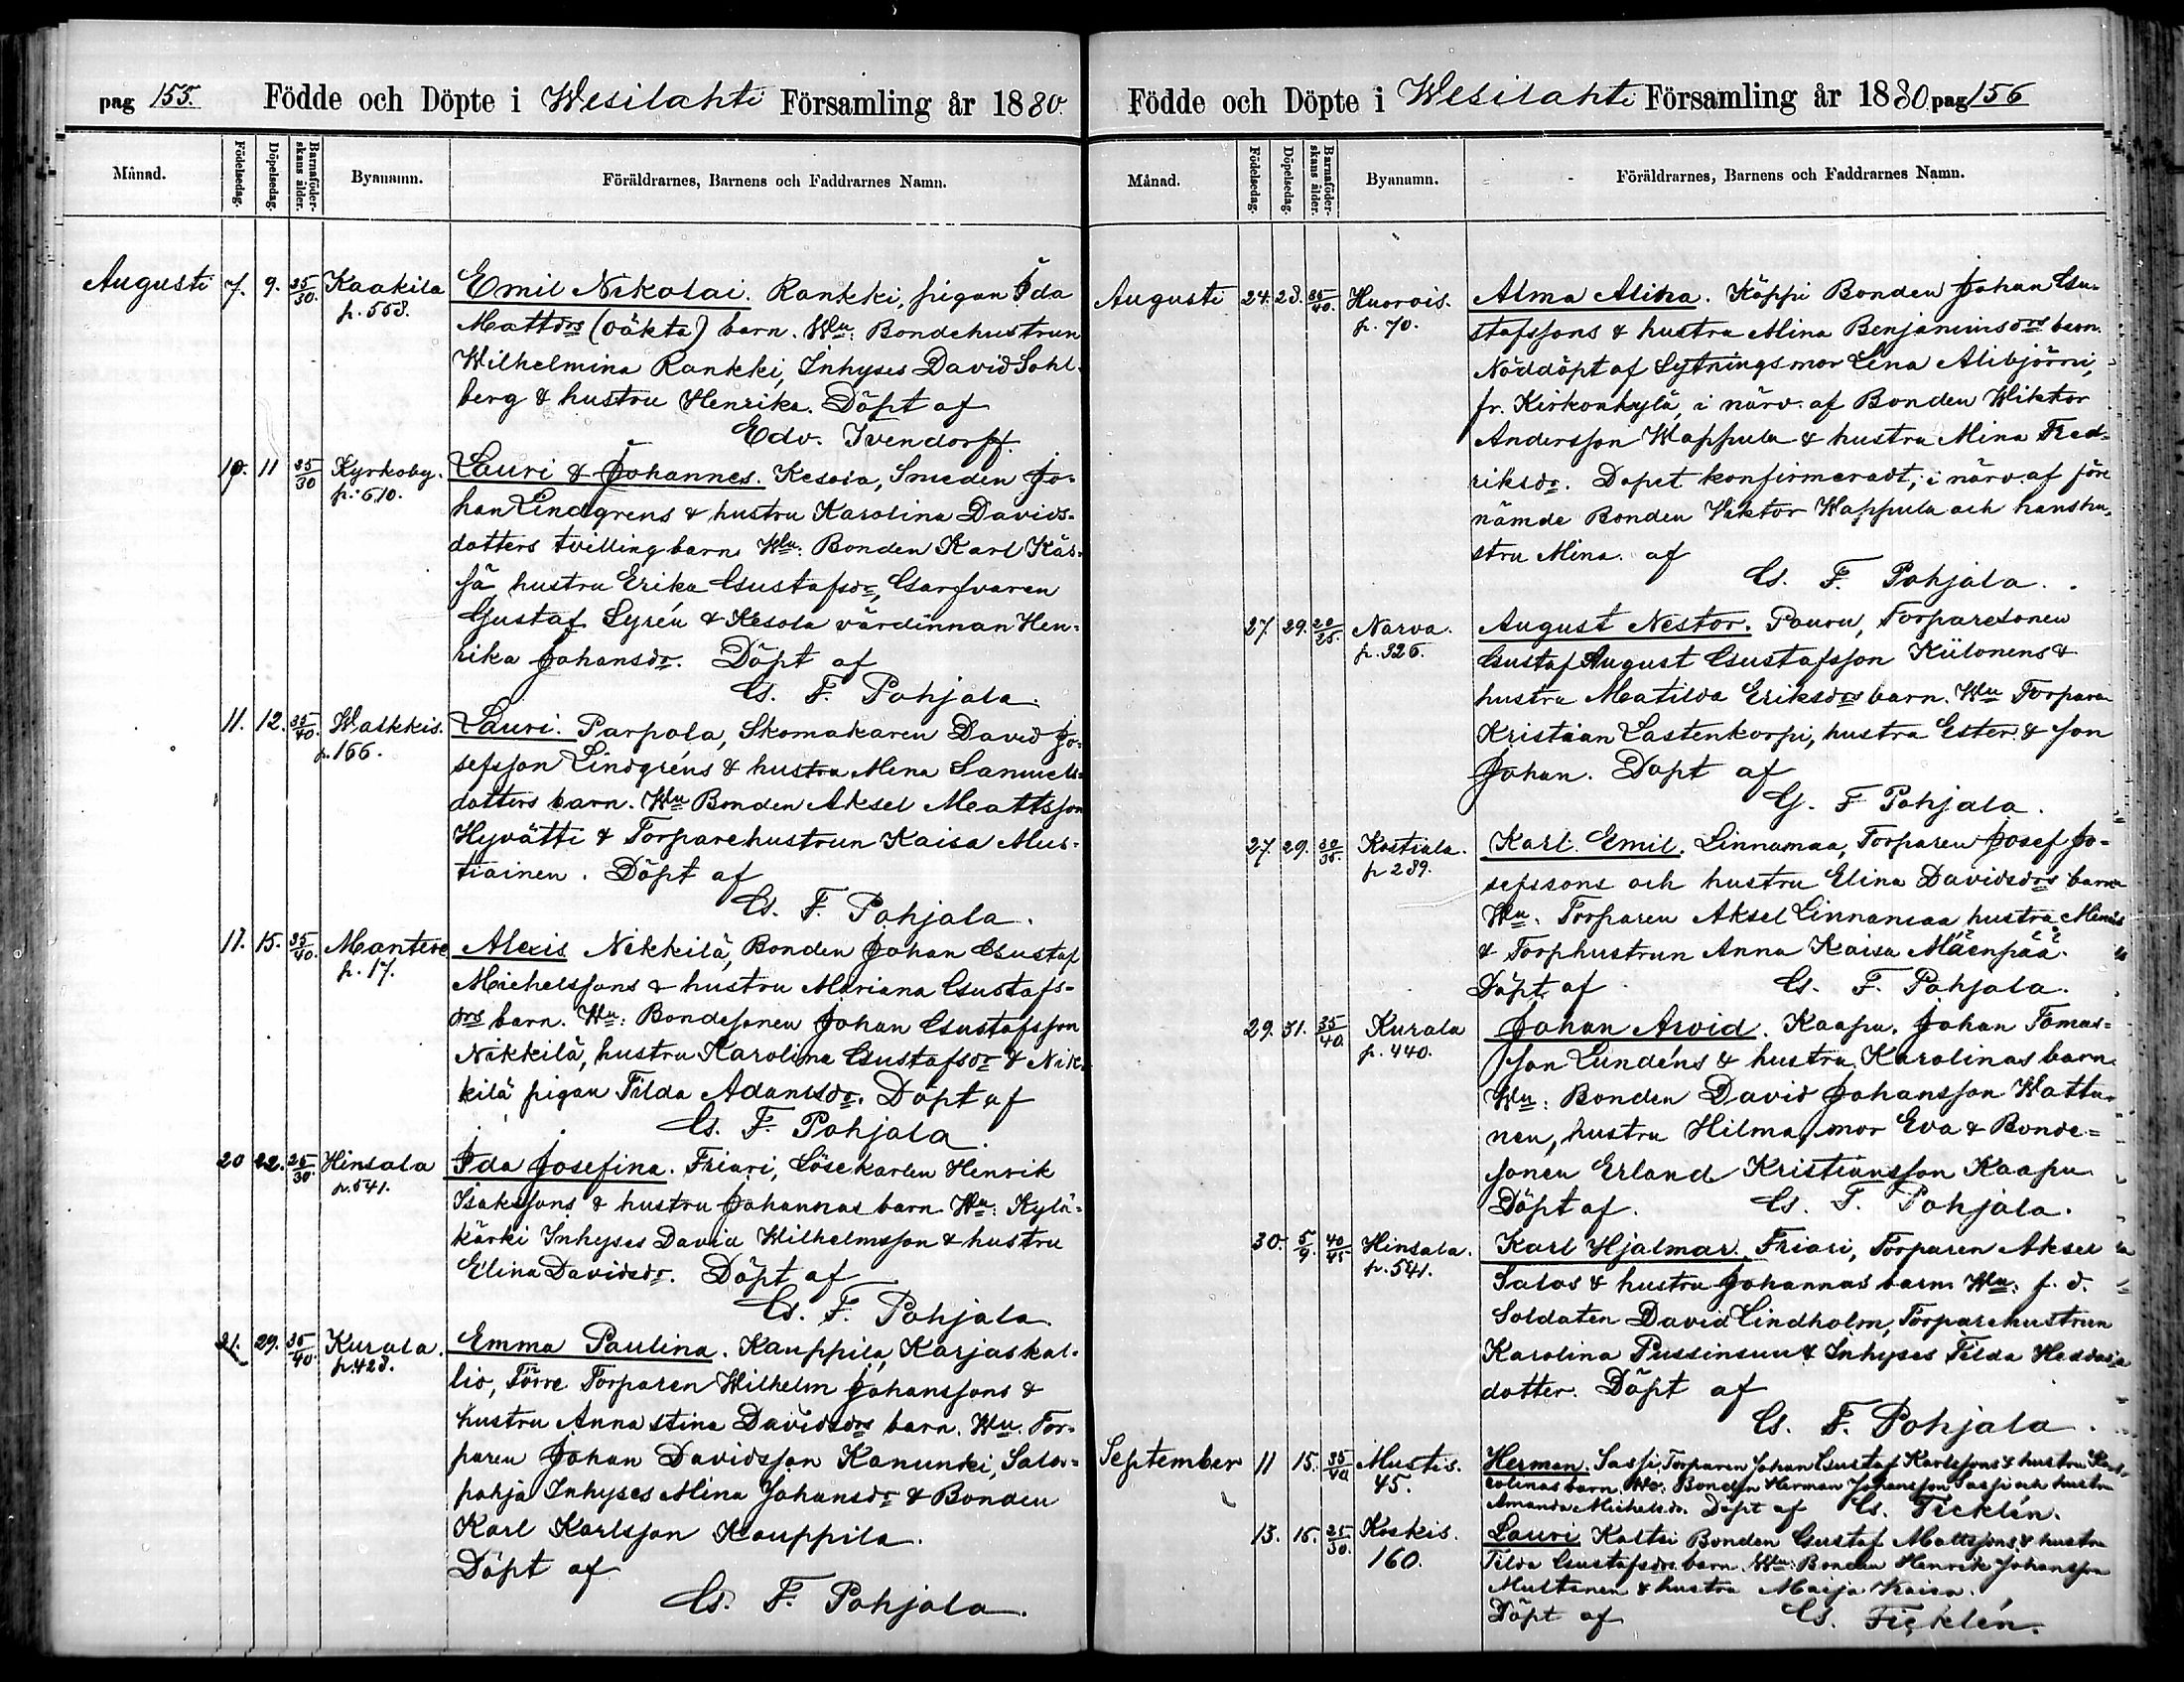 pag 155. Födde och Döpte i Wesilahti Församling år 1880.
Månad. Födelsedag. Döpelsedag. Barnaföderskans ålder. Byanamn. Föräldrarnes, Barnens och Faddrarnes Namn.
Augusti 7. 9. 35/30. Kaakila Emil Nikolai. Rankki, pigan Ida
p. 558. Mattdrs (oäkta) barn. Wn: Bondehustrun
Wilhelmina Rankki, Inhyses David Sohl-
berg & hustru Henrika. Döpt af
Edv. Ivendorff.
10. 11 35/30 Kyrkoby. Lauri & Johannes. Kesola, Smeden Jo-
p. 610. han Lindgrens & hustru Karolina Davids-
dotters tvillingbarn. Wn: Bonden Karl Käs-
sä, hustru Erika Gustafsdr, Garfvaren
Gustaf Syrén & Kesola värdinnan Hen-
rika Johansdr. Döpt af
G. F. Pohjala.
11. 12. 35/40. Walkkis. Lauri. Parpola, Skomakaren David Jo-
p. 166. sefsson Lindgréns & hustru Mina Samuels-
dotters barn. Wn Bonden Aksel Mattsson
Hyvätti & Torparehustrun Kaisa Mus-
tiainen. Döpt af
G. F. Pohjala.
11. 15. 35/40. Mantere Alexis Nikkilä, Bonden Johan Gustaf
p. 17. Michelssons & hustru Mariana Gustafs-
drs barn. Wn: Bondesonen Johan Gustafsson
Nikkilä, hustru Karolina Gustafsdr & Nik-
kilä pigan Tilda Adamsdr. Döpt af
G. F. Pohjala.
20 22. 25/30. Hinsala Ida Josefina. Friari, Lösekarlen Henrik
p. 541. Isakssons & hustru Johannas barn Wn: Kylä-
kärki Inhyses David Wilhelmsson & hustru
Elina Davidsdr. Döpt af
G. F. Pohjala
21. 29. 35/40. Kurala. Emma Paulina. Kauppila, Karjaskal-
p. 428. lio, Förre Torparen Wilhelm Johanssons &
hustru Anna Stina Davidsdrs barn. Wn. Tor-
paren Johan Davidsson Kanunki, Salon-
pohja Inhyses Mina Johansdr & Bonden
Karl Karlsson Kauppila.
Döpt af
G. F. Pohjala.
Födde och Döpte i Wesilahti Församling år 1880. pag 156
Månad. Födelsedag. Döpelsedag. Barnaföderskans ålder. Byanamn. Föräldrarnes, Barnens och Faddrarnes Namn.
Augusti 24. 28. 35/40. Huorois. Alma Alina. Käppi Bonden Johan Gu-
p. 70. stafssons & hustru Mina Benjaminsdrs barn.
Nöddöpt af Lytningsmor Lena Alibjörni,
fr. Kirkonkylä, i närv. af Bonden Wiktor
Andersson Wappula & hustru Mina Fred-
riksdr. Dopet konfirmeradt, i närv. af före
nämde Bonden Viktor Wappula och hans hu-
stru Mina. af
G. F. Pohjala.
27. 29. 20/25. Narva. August Nestor. Pouru, Torparesonen
p. 326. Gustaf August Gustafsson Kiilonens &
hustru Matilda Eriksdrs barn. Wn Torparen
Kristian Lastenkorpi, hustru Ester & son
Johan. Döpt af
G. F Pohjala.
27. 29. 30/35. Kostiala. Karl Emil. Linnamaa, Torparen Josef Jo-
p 289. sefssons och hustru Elina Davidsdrs barn
Wn. Torparen Aksel Linnamaa hustru Mina
& Torphustrun Anna Kaisa Mäenpää.
Döpt af G. F. Pohjala.
29. 31. 35/40. Kurala Johan Arvid. Kaapu. Johan Tomas-
p. 440. son Lundéns & hustru Karolinas barn.
Wn: Bonden David Johansson Wattu-
nen, hustru Hilma, mor Eva & Bonde-
sonen Erland Kristiansson Kaapu
Döpt af. G. F. Pohjala.
30. 5/9. 40/45 Hinsala. Karl Hjalmar. Friari, Torparen Aksel
p. 541. Salos & hustru Johannas barn Wn: f. d.
Soldaten David Lindholm, Torparehustrun
Karolina Pussinsuu & Inhyses Tilda
dotter. Döpt af
G. F. Pohjala.
September 11 15. 35/40 Mustis. Herman. Sassi, Torparen Johan Gustaf Karlssons & hustru Ka-
45. rolinas barn. Wn: Bonden Herman Johansson Sassi och hustru
Amanda Michelsdr. Döpt af G. Ficklén.
13. 15. 25/30. Koskis. Lauri Kaltsi Bonden Gustaf Mattssons & hustru
160. Tilda Gustafsdrs barn. Wn: Bonden Henrik Johansson
Multanen & hustru Maija Kaisa.
Döpt af G. Ficklén.